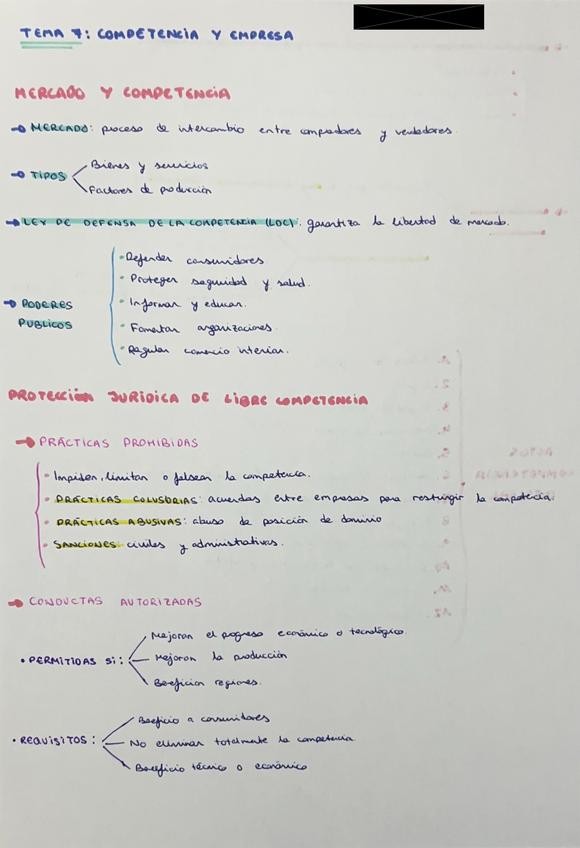 TEMA 7: COMPETENCIA Y EMPRESA
MERCADO Y COMPETENCIA
MERCADO: proceso de intercambio entre compradores y vendedores.
TIPOS
Bienes y servicios
Factores de producción
LEY DE DEFENSA DE LA COMPETENCIA (LDC): garantiza la libertad de mercado.
PODERES PUBLICOS
• Defender consumidores
• Proteger seguridad y salud.
• Informar y educar.
• Fomentar organizaciones.
• Regular comercio interior.
PROTECCIÓN JURÍDICA DE LIBRE COMPETENCIA
PRÁCTICAS PROHIBIDAS
• Impiden, limitan o falsean la competencia.
• PRÁCTICAS COLUSORIAS: acuerdos entre empresas para restringir la competencia.
• PRÁCTICAS ABUSIVAS: abuso de posición de dominio
• SANCIONES: civiles y administrativas.
CONDUCTAS AUTORIZADAS
• PERMITIDAS si:
Mejoran el progreso económico o tecnológico.
Mejoran la producción
Benefician regiones.
• REQUISITOS:
Beneficio a consumidores
No eliminar totalmente la competencia
Beneficio técnico o económico